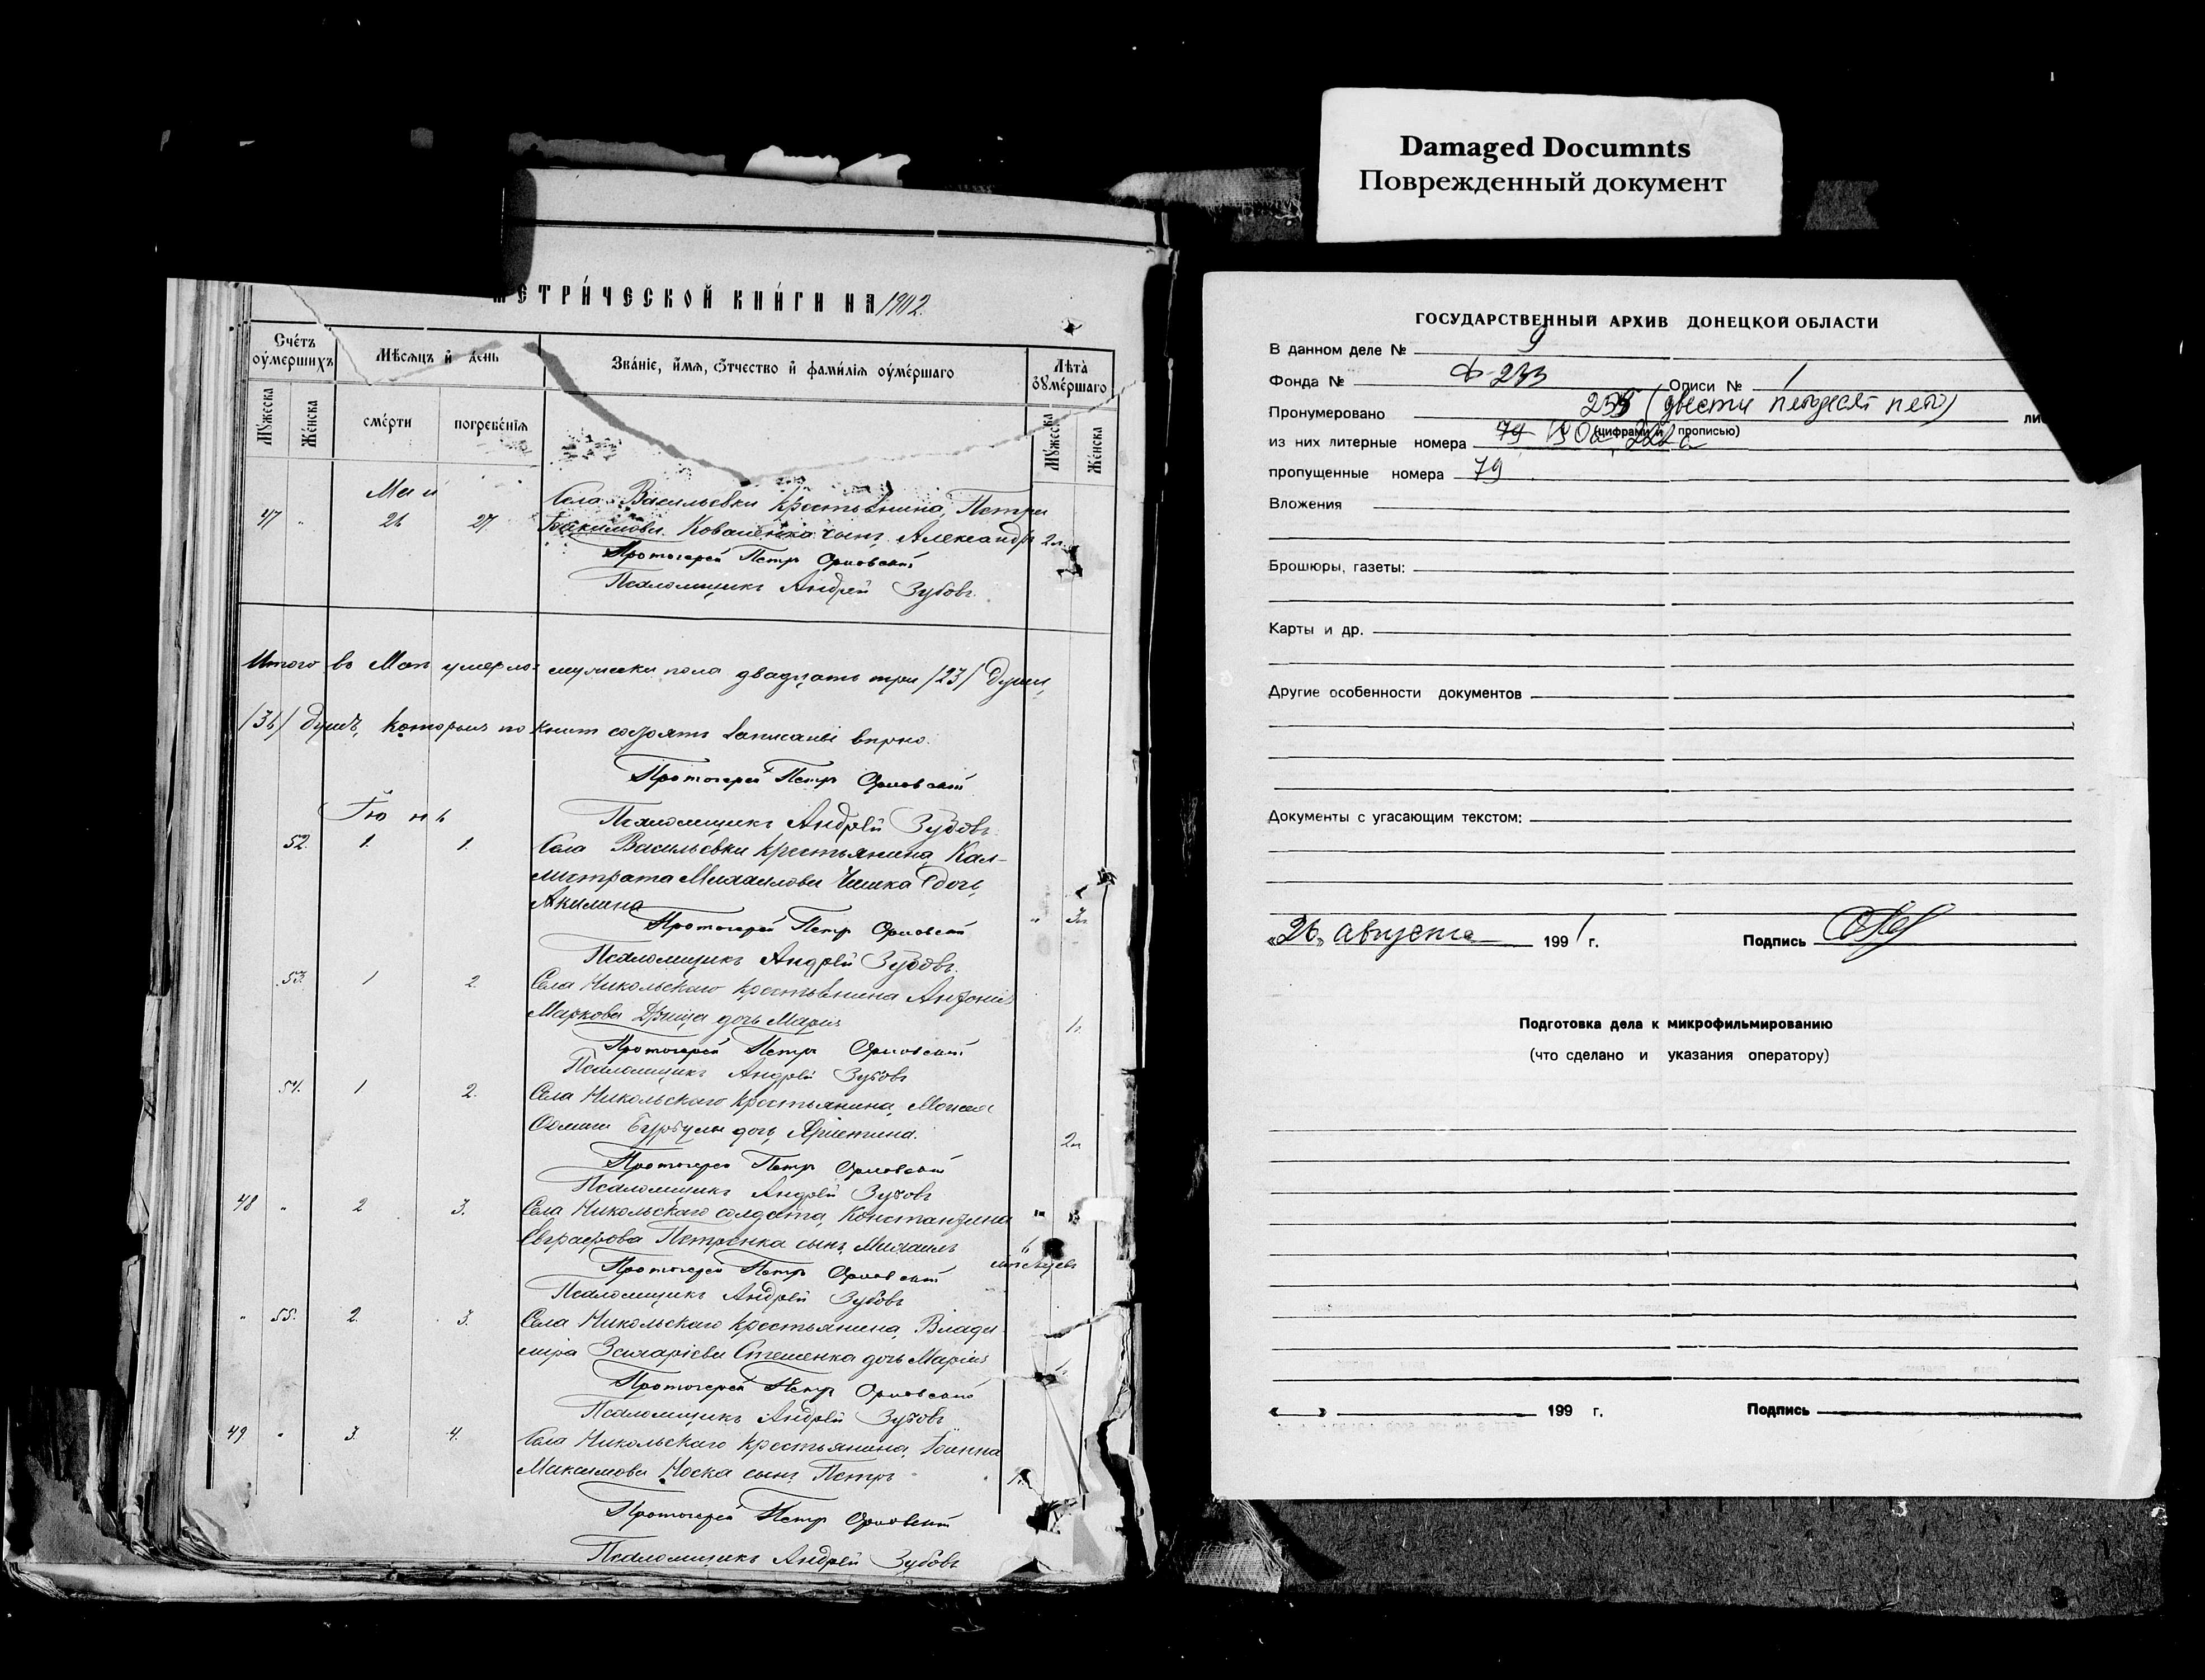 Damaged Documnts
Поврежденный документ
МЕТРИ́ЧЕСКОЙ КНИ́ГИ НА 1902.
Сче́тъ ᲂу҆ме́ршихъ
Мѣ́сяцъ и҆ де́нь
Зва́нїе, и҆́мѧ, ѻ҆́тчество и҆ фамі́лїѧ ᲂу҆ме́ршаго
Лѣ́та ᲂу҆ме́ршаго
Мꙋ́жеска
Же́нска
сме́рти
погребе́нїѧ
Мꙋ́жеска
Же́нска
Май
Села Васильевки крестьянина, Петра
47 " 26 27 Іоакимова Коваленка сынъ Александръ 2л.
Протоіерей Петръ Орловскій
Псаломщикъ Андрей Зубовъ.
Итого въ Маѣ умерло мужеска пола двадцать три /23/ души,
/36/ душъ, которыя по книгѣ состоятъ записаны вѣрно.
Протоіерей Петръ Орловскій
Іюнь
Псаломщикъ Андрей Зубовъ.
52. 1. 1. Села Васильевки крестьянина, Кал-
листрата Михаилова Чишка дочь,
Акилина " 3л
Протоіерей Петръ Орловскій
Псаломщикъ Андрей Зубовъ.
53. 1 2. Села Никольскаго крестьянина Антонія
Маркова дочь Марія 1г.
Протоіерей Петръ Орловскій
Псаломщикъ Андрей Зубовъ
54. 1 2. Села Никольскаго крестьянина, Моисея
дочь, Христина. 2л
Протоіерей Петръ Орловскій
Псаломщикъ Андрей Зубовъ
48 " 2 3. Села Никольскаго солдата, Константина
Евграфова Петренка сынъ, Михаилъ 6
мѣсяцевъ
Протоіерей Петръ Орловскій
Псаломщикъ Андрей Зубовъ
" 55. 2. 3. Села Никольскаго крестьянина, Влади
міра Стешенка дочь Марія
Протоіерей Петръ Орловскій
Псаломщикъ Андрей Зубовъ
49 " 3. 4. Села Никольскаго крестьянина, Іоанна
Максимова Носка сынъ Петръ 1г.
Протоіерей Петръ Орловскій
Псаломщикъ Андрей Зубовъ
ГОСУДАРСТВЕННЫЙ АРХИВ ДОНЕЦКОЙ ОБЛАСТИ
В данном деле № 9
Фонда № Ф-233 Описи № 1
Пронумеровано 255 (двести пятдесят пять) ли
(цифрами и прописью)
из них литерные номера 79 130а, 222а
пропущенные номера 79
Вложения
Брошюры, газеты:
Карты и др.
Другие особенности документов
Документы с угасающим текстом:
«26» августа 1991 г. Подпись
Подготовка дела к микрофильмированию
(что сделано и указания оператору)
« » 199 г. Подпись